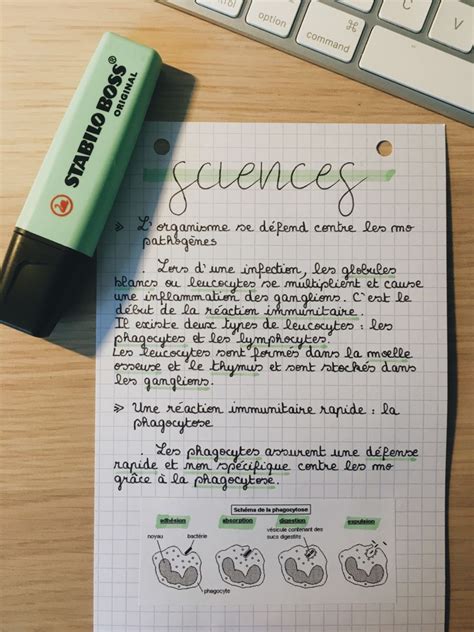 control
option
command
STABILO BOSS
ORIGINAL
sciences
» L'organisme se défend contre les mo
pathogènes
. Lors d'une infection, les globules
blancs ou leucocytes se multiplient et cause
une inflammation des ganglions. C'est le
début de la réaction immunitaire.
Il existe deux types de leucocytes : les
phagocytes et les lymphocytes.
Les leucocytes sont formés dans la moelle
osseuse et le thymus et sont stockés dans
les ganglions.
» Une réaction immunitaire rapide : la
phagocytose
. Les phagocytes assurent une défense
rapide et non spécifique contre les mo
grâce à la phagocytose.
Schéma de la phagocytose
adhésion absorption digestion expulsion
noyau bactérie vésicule contenant des
sucs digestifs
phagocyte